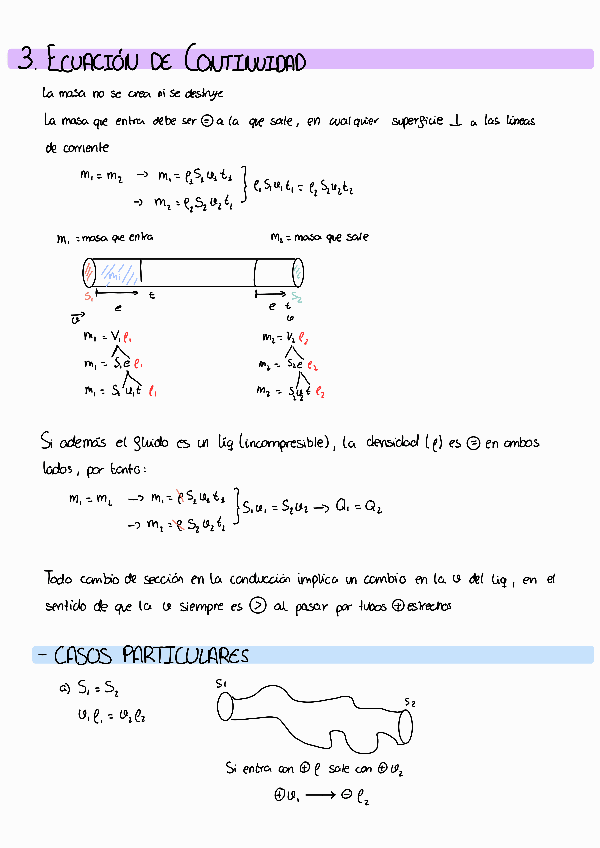 3. ECUACIÓN DE CONTINUIDAD
La masa no se crea ni se destruye
La masa que entra debe ser ⊜ a la que sale, en cualquier superficie ⊥ a las líneas
de corriente
m₁ = m₂ → m₁ = ρ₁S₁v₁t₁
→ m₂ = ρ₂S₂v₂t₂ } ρ₁S₁v₁t₁ = ρ₂S₂v₂t₂
m₁ = masa que entra
m₂ = masa que sale
m₁
S₁ e t
e t S₂
v
v
m₁ = V₁ρ₁
m₂ = V₂ρ₂
m₁ = S₁e ρ₁
m₂ = S₂e ρ₂
m₁ = S₁v₁t ρ₁
m₂ = S₂v₂t ρ₂
Si además el fluido es un líq (incompresible), la densidad (ρ) es ⊜ en ambos
lados, por tanto:
m₁ = m₂ → m₁ = ρ S₁v₁t₁
→ m₂ = ρ S₂v₂t₂ } S₁v₁ = S₂v₂ → Q₁ = Q₂
Todo cambio de sección en la conducción implica un cambio en la v del líq, en el
sentido de que la v siempre es ⧁ al pasar por tubos ⊕ estrechos
- CASOS PARTICULARES
a) S₁ = S₂
v₁ρ₁ = v₂ρ₂
S₁
S₂
Si entra con ⊕ ρ sale con ⊕ v₂
⊕ v₁ → ⊖ ρ₂